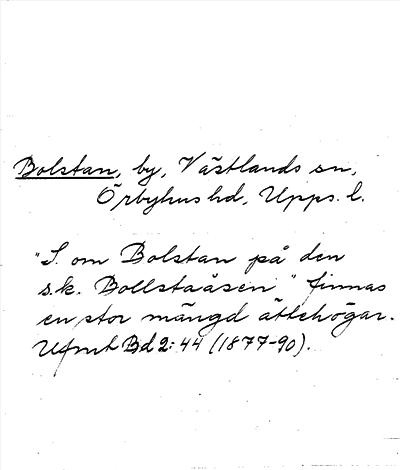 Bolstan, by, Västlands sn,
Örbyhus hd, Upps. l.
"S. om Bolstan på den
s.k. Bollstaåsen" finnas
en stor mängd ättehögar.
Ufmt Bd 2:44 (1877-90).